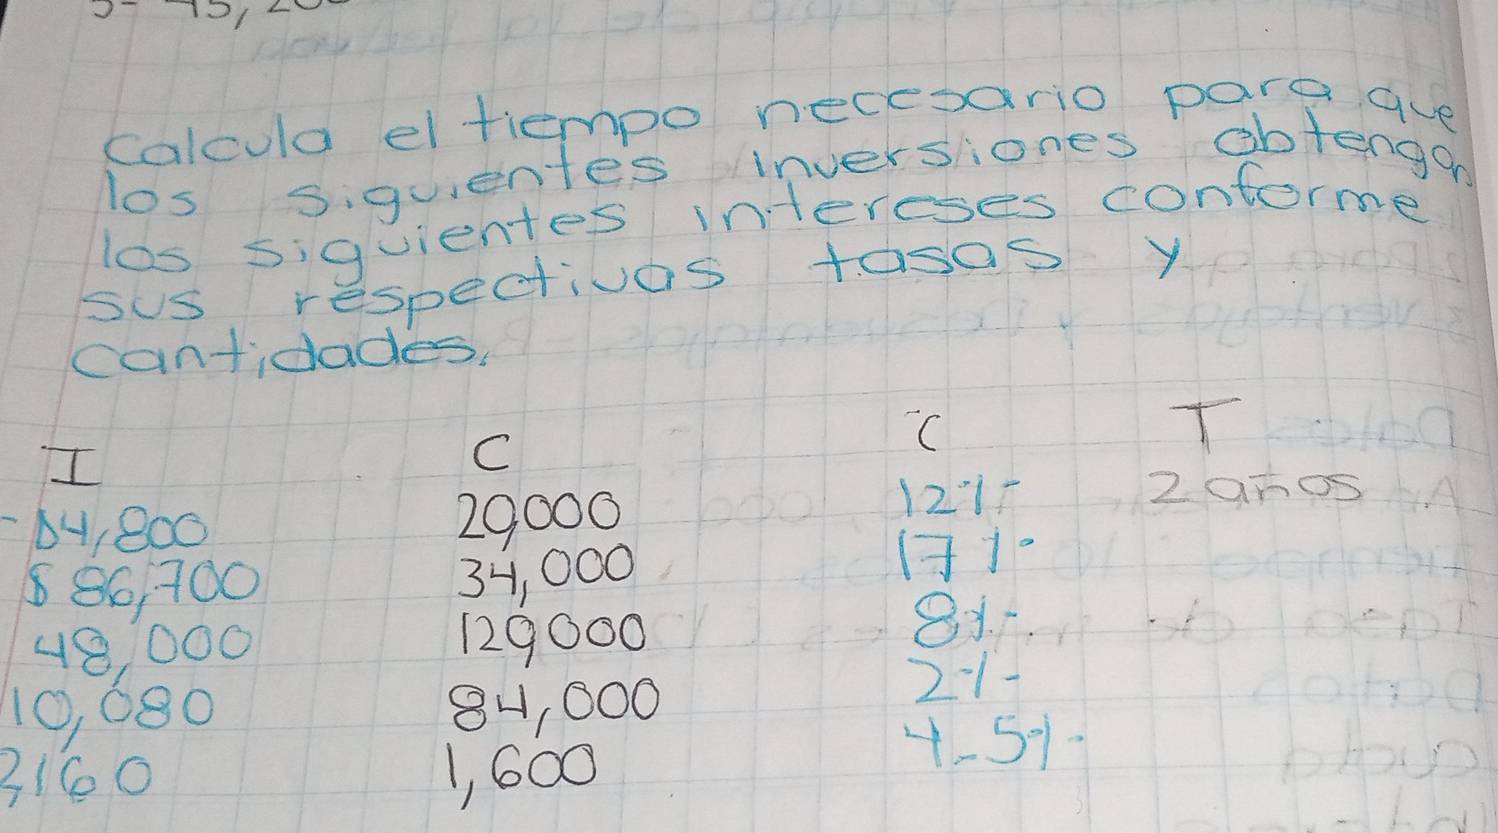 calcula el tiempo necesario para que
los siguientes inversiones obtengan
los siguientes intereses conforme
sus respectivas tasas y
cantidades.
I C i T
$4,800 20,000 12% 2 años
$86,700 34,000 17%
48,000 120,000 8%
10,080 84,000 2%
2,160 1,600 4.5%